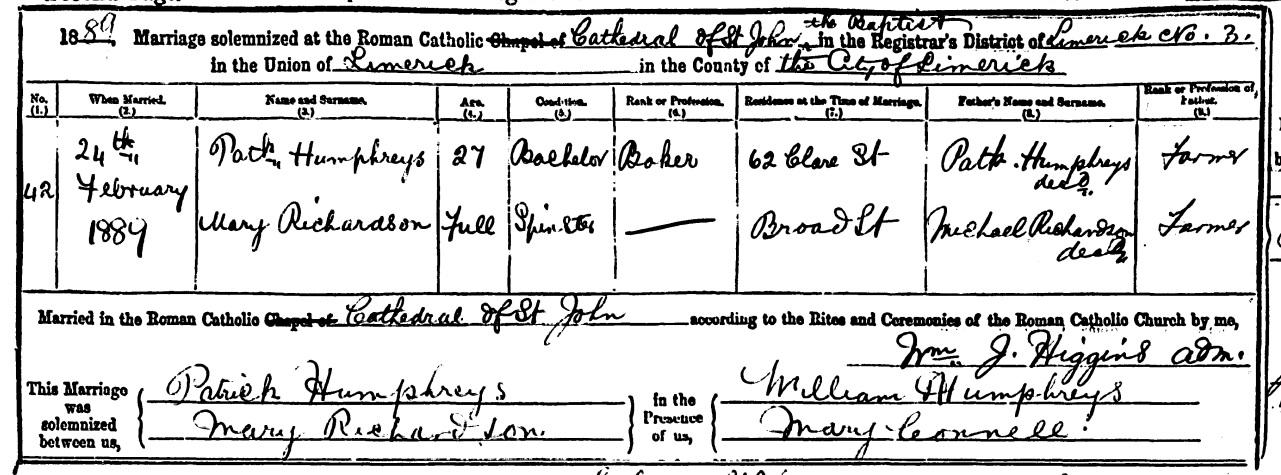 1889. Marriage solemnized at the Roman Catholic Chapel of Cathedral of St John the Baptist in the Registrar's District of Limerick No. 3.
in the Union of Limerick in the County of the City of Limerick
No. (1.) When Married. (2.) Name and Surname. (3.) Age. (4.) Condition. (5.) Rank or Profession. (6.) Residence at the Time of Marriage. (7.) Father's Name and Surname. (8.) Rank or Profession of Father. (9.)
42 24th February 1889
Patk Humphreys 27 Bachelor Baker 62 Clare St Patk. Humphreys decd. Farmer
Mary Richardson Full Spinster — Broad St Michael Richardson decd. Farmer
Married in the Roman Catholic Chapel of Cathedral of St John according to the Rites and Ceremonies of the Roman Catholic Church by me,
Wm J. Higgins adm.
This Marriage was solemnized between us,
Patrick Humphreys
Mary Richardson.
in the Presence of us,
William Humphreys
Mary Connell